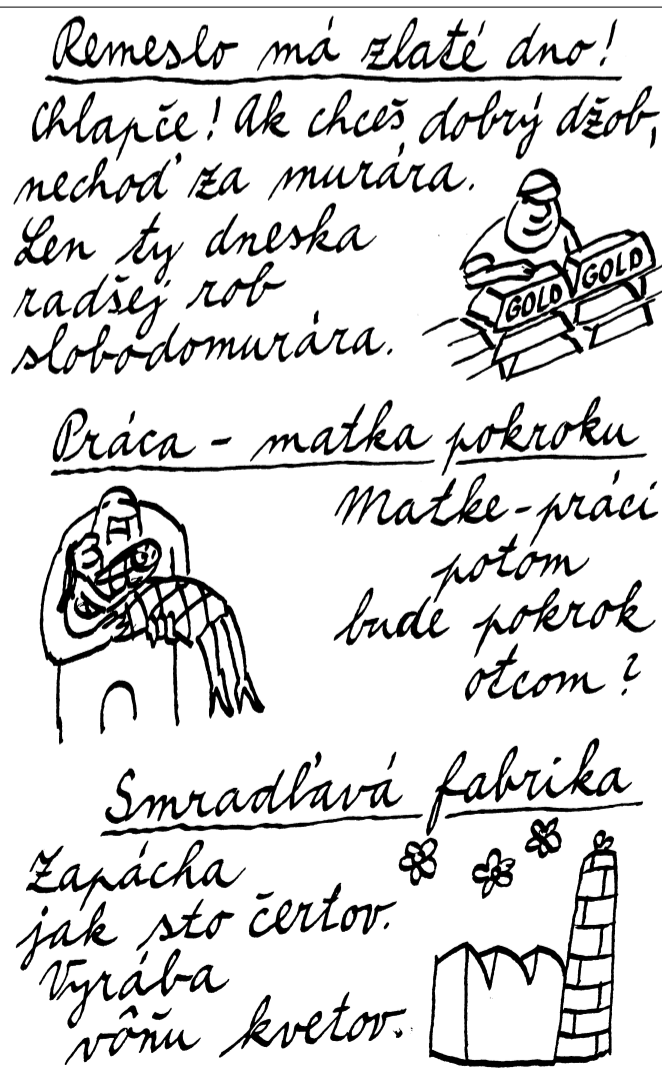 Remeslo má zlaté dno!
Chlapče! Ak chceš dobrý džob,
nechoď za murára.
Len ty dneska
radšej rob
slobodomurára.
GOLD GOLD
Práca - matka pokroku
Matke-práci
potom
bude pokrok
otcom?
Smradľavá fabrika
Zapácha
jak sto čertov.
Vyrába
vôňu kvetov.